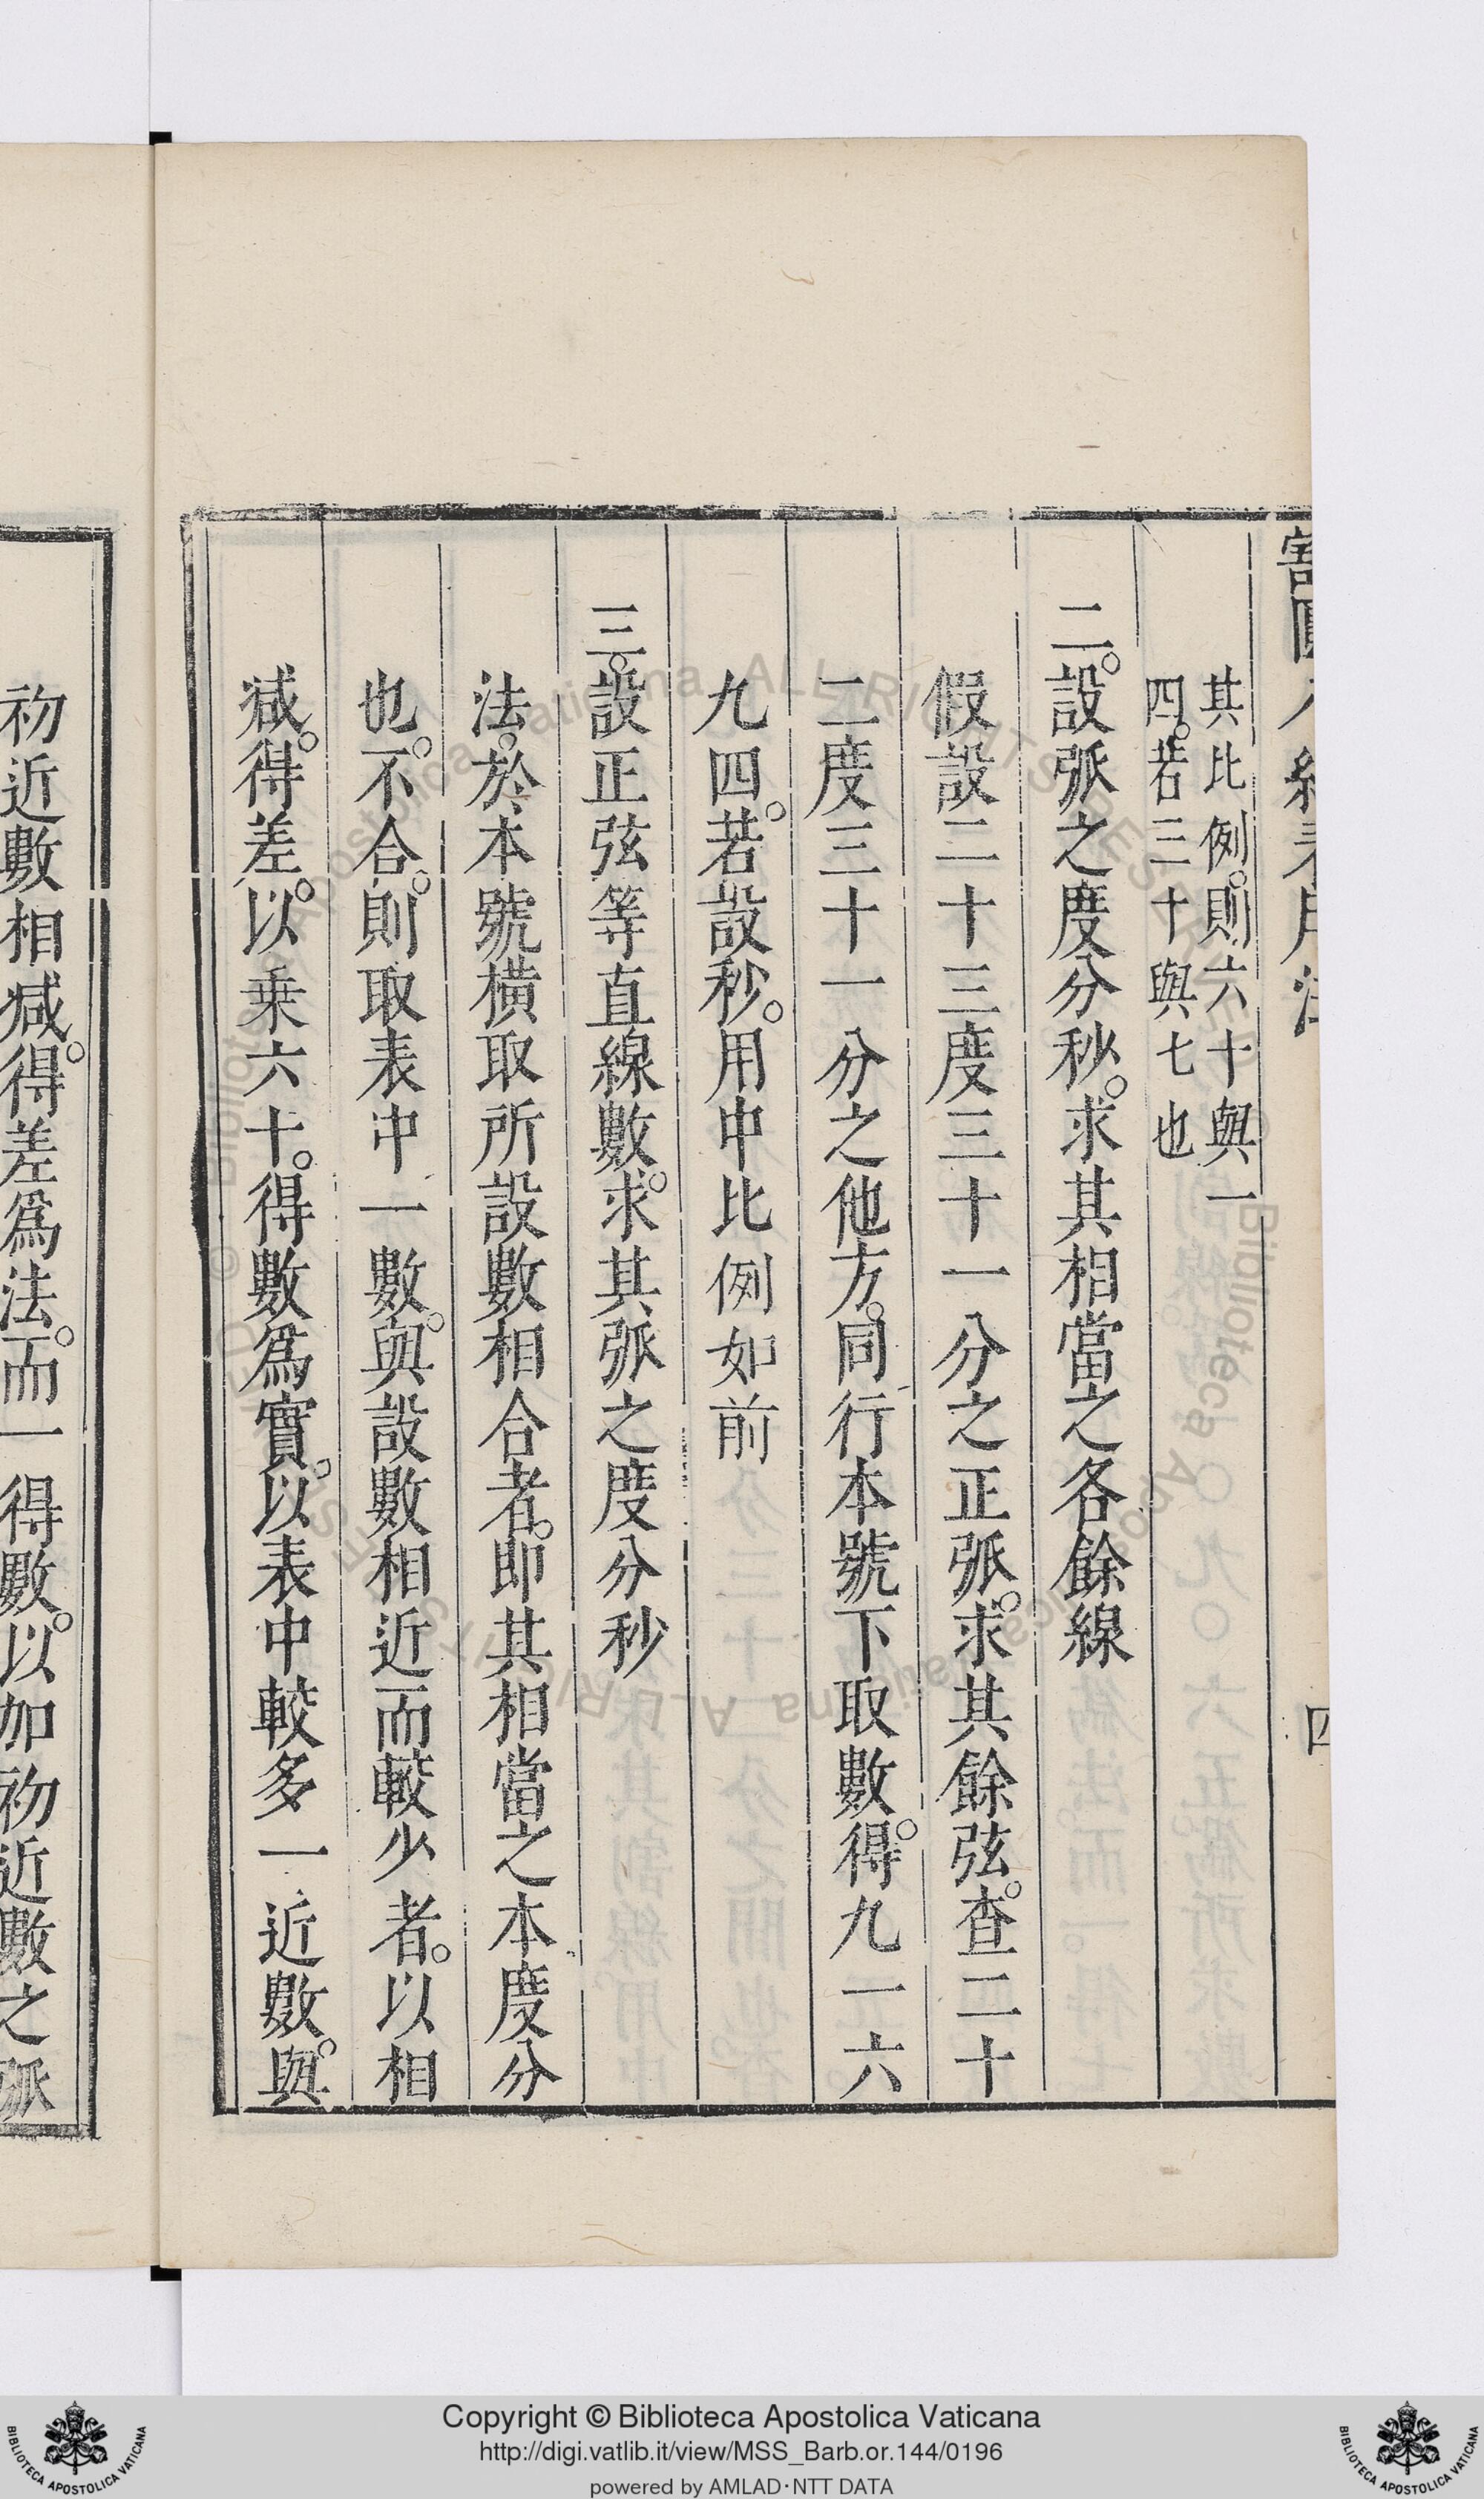 其比例。則六十與一
四。若三十與七也
二。設弧之度分秒。求其相當之各餘線
假設二十三度三十一分之正弧。求其餘弦。查二十
二度三十一分之他方。同行本號下取數。得九一六
九四。若設秒。用中比例如前
三。設正弦等直線數。求其弧之度分秒
法。於本號橫取所設數相合者。即其相當之本度分
也。不合。則取表中一數。與設數相近而較少者。以相
减。得差。以乗六十。得數爲實。以表中較多一近數。與
初近數相减。得差爲法。而一得數。以加初近數之弧
四
Copyright © Biblioteca Apostolica Vaticana
http://digi.vatlib.it/view/MSS_Barb.or.144/0196
powered by AMLAD·NTT DATA
BIBLIOTECA APOSTOLICA VATICANA
BIBLIOTECA APOSTOLICA VATICANA